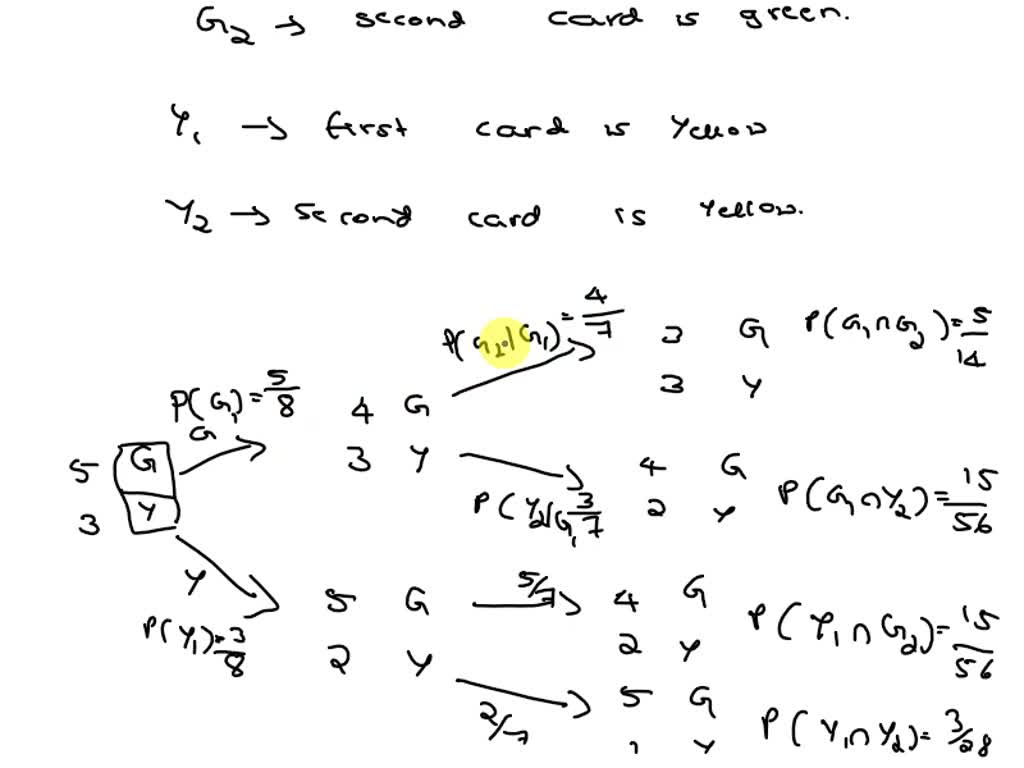 G2 → second card is green.
Y1 → first card is yellow
Y2 → second card is yellow.
P(G2|G1) = 4/7
3 G P(G1∩G2) = 5/14
3 Y
P(G1) = 5/8
G
4 G
3 Y
5 G
3 Y
4 G
2 Y
P(Y2|G1 3/7
P(G1∩Y2) = 15/56
Y
P(Y1) = 3/8
5 G
2 Y
5/7
4 G
2 Y
P(Y1∩G2) = 15/56
2/7
5 G
1 Y
P(Y1∩Y2) = 3/28